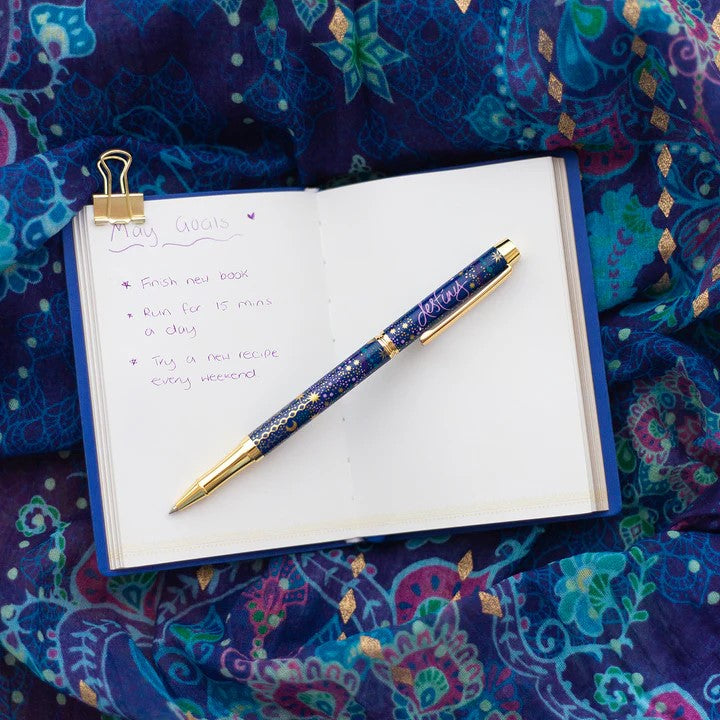 May Goals ♥
* Finish new book
* Run for 15 mins
a day
* Try a new recipe
every weekend
destiny